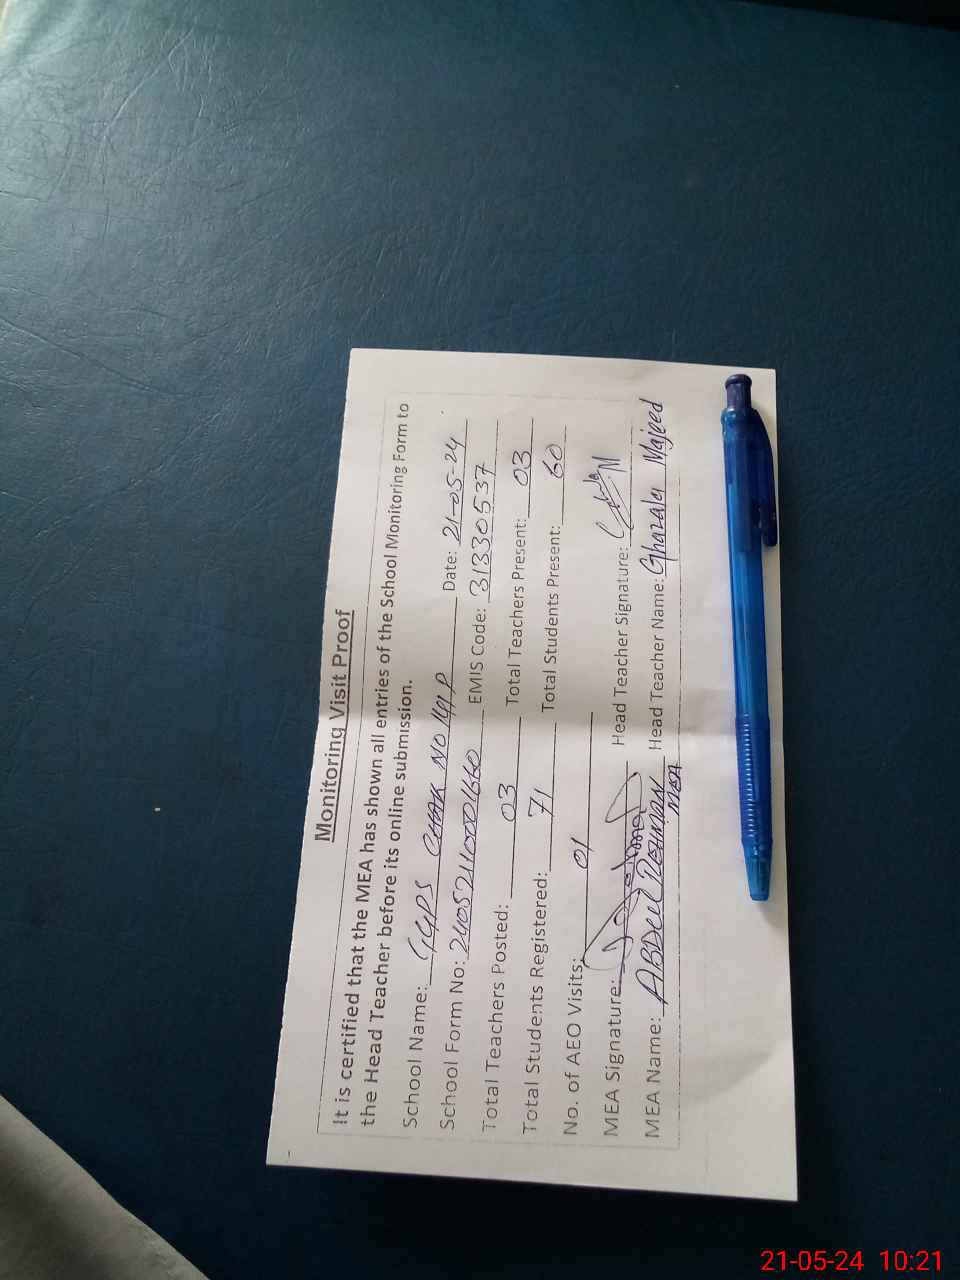 Monitoring Visit Proof
It is certified that the MEA has shown all entries of the School Monitoring Form to
the Head Teacher before its online submission.
School Name: GGPS CHAK NO 141P Date: 21-05-24
School Form No: EMIS Code: 31330537
Total Teachers Posted: 03 Total Teachers Present: 03
Total Students Registered: 71 Total Students Present: 60
No. of AEO Visits: 01
MEA Signature: Head Teacher Signature:
MEA Name: ABDUL REHMAN Head Teacher Name: Ghazala Majeed
MEA
21-05-24 10:21